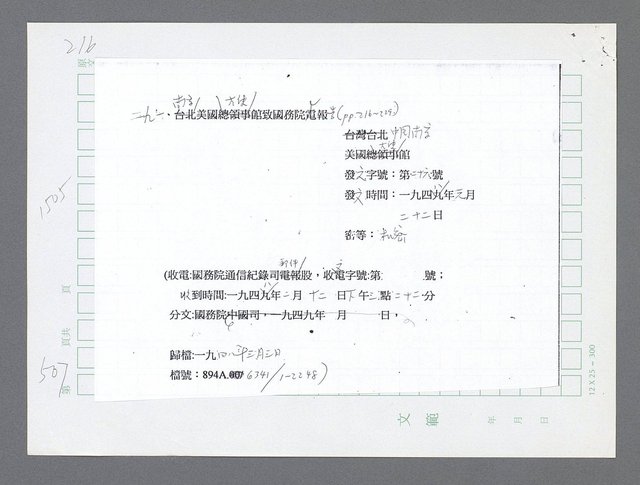 216
南京 大使
二九一．台北美國總領事館致國務院電報(pp.216~229)
台灣台北 中國南京
美國總領事館 大使
發文字號：第二十六號
發文時間：一九四九年元月
二十二日
密等：
(收電:國務院通信紀錄司電報股，收電字號:第 號；
收到時間:一九四九年二月十二日下午三點二十二分
分文:國務院中國司，一九四九年 月 日，
歸檔:一九四八年三月三日
檔號：894A.00/ 6341/1-2248)
1505
頁
頁共
507
第
文範
年 月 日
12 X 25 - 300